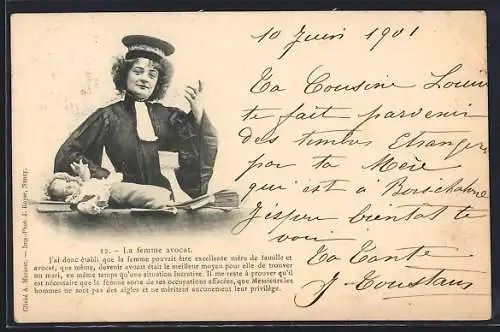 10 Juin 1901
Ta Cousine Louise
te fait parvenir
des timbres Etrangers
par ta Mère
qui est à
J'espère bientôt te
voir
Ta Tante
J. Toustain
12. - La femme avocat.
J'ai donc établi que la femme pouvait être excellente mère de famille et
avocat, que même, devenir avocat était le meilleur moyen pour elle de trouver
un mari, en même temps qu'une situation lucrative. Il me reste à prouver qu'il
est nécessaire que la femme sorte de ses occupations effacées, que Messieurs les
hommes ne sont pas des aigles et ne méritent aucunement leur privilège.
Cliché A. — Imp.-Phot. J. Royer, Nancy.